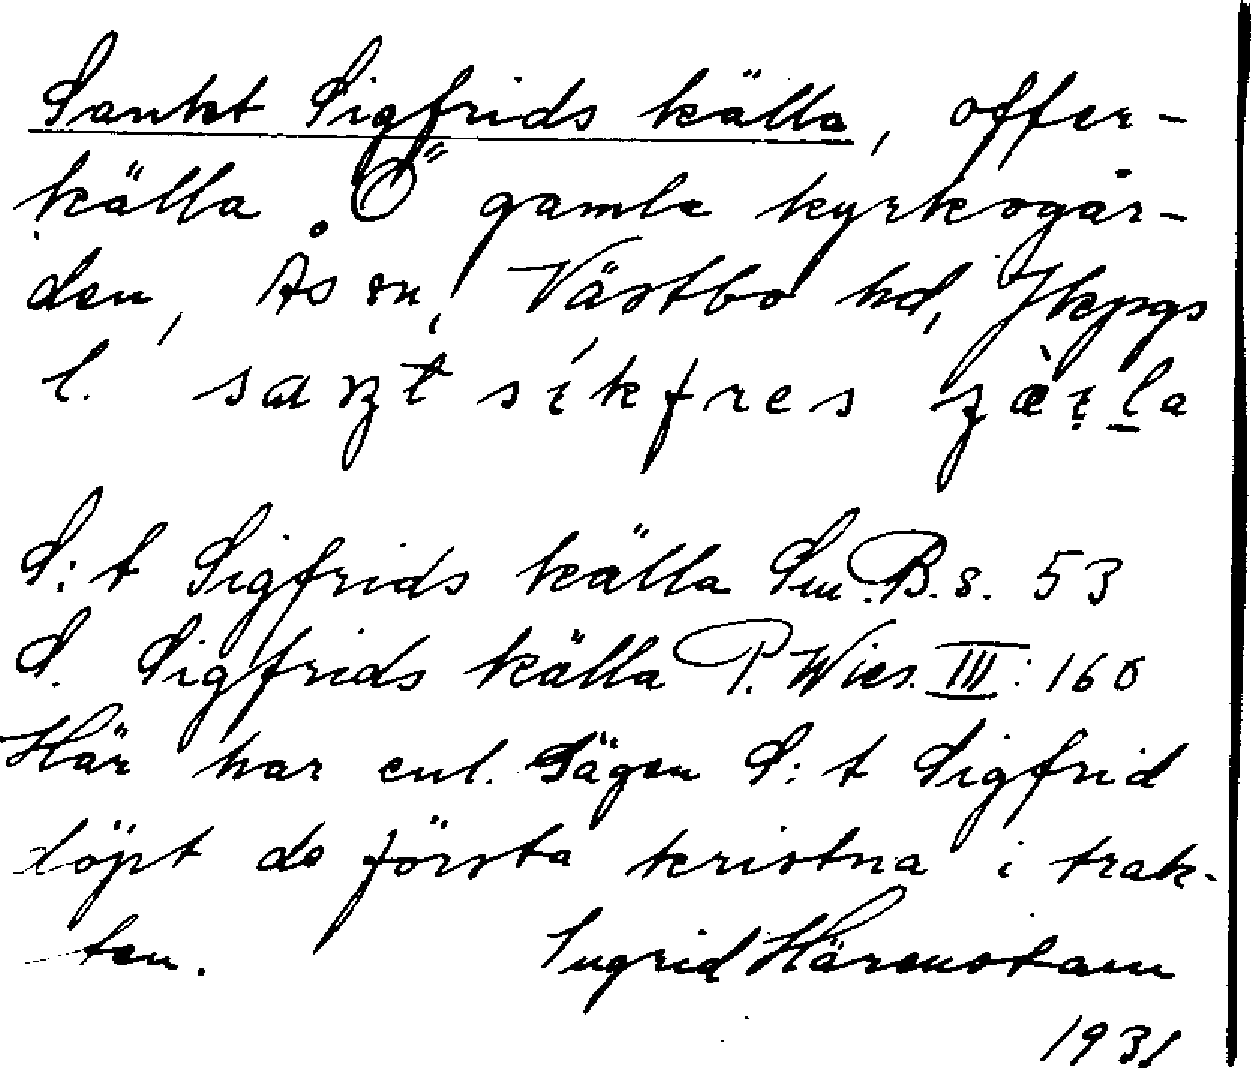 Sankt Sigfrids källa, offer-
källa. Ö gamla kyrkogår-
den, Ås sn, Västbo hd, Jkpgs
l.
S:t Sigfrids källa Sm. B. s. 53
S. Sigfrids källa P. Wies. III: 160
Här har enl. Sägen S:t Sigfrid
döpt de första kristna i trak-
ten. Ingrid Härenstam
1931